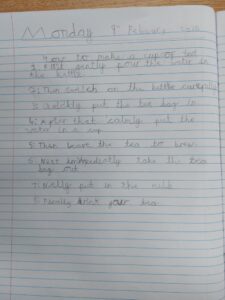 Monday 9th February
How to make a cup of tea
1. First gently pour the water in
the kettle.
2. Then switch on the kettle carefully
3. quickly put the tea bag in
4. After that calmly put the
water in a cup
5. Then leave the tea to brew.
6. Next take the tea
bag out
7. put in the milk
8. Finally drink your tea